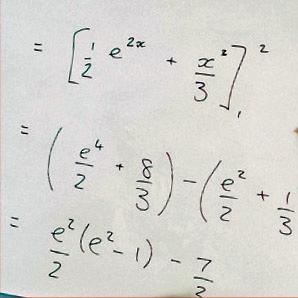 = [ 1/2 e^{2x} + x^3/3 ]_1^2
= ( e^4/2 + 8/3 ) - ( e^2/2 + 1/3
= e^2/2 (e^2 - 1) - 7/3